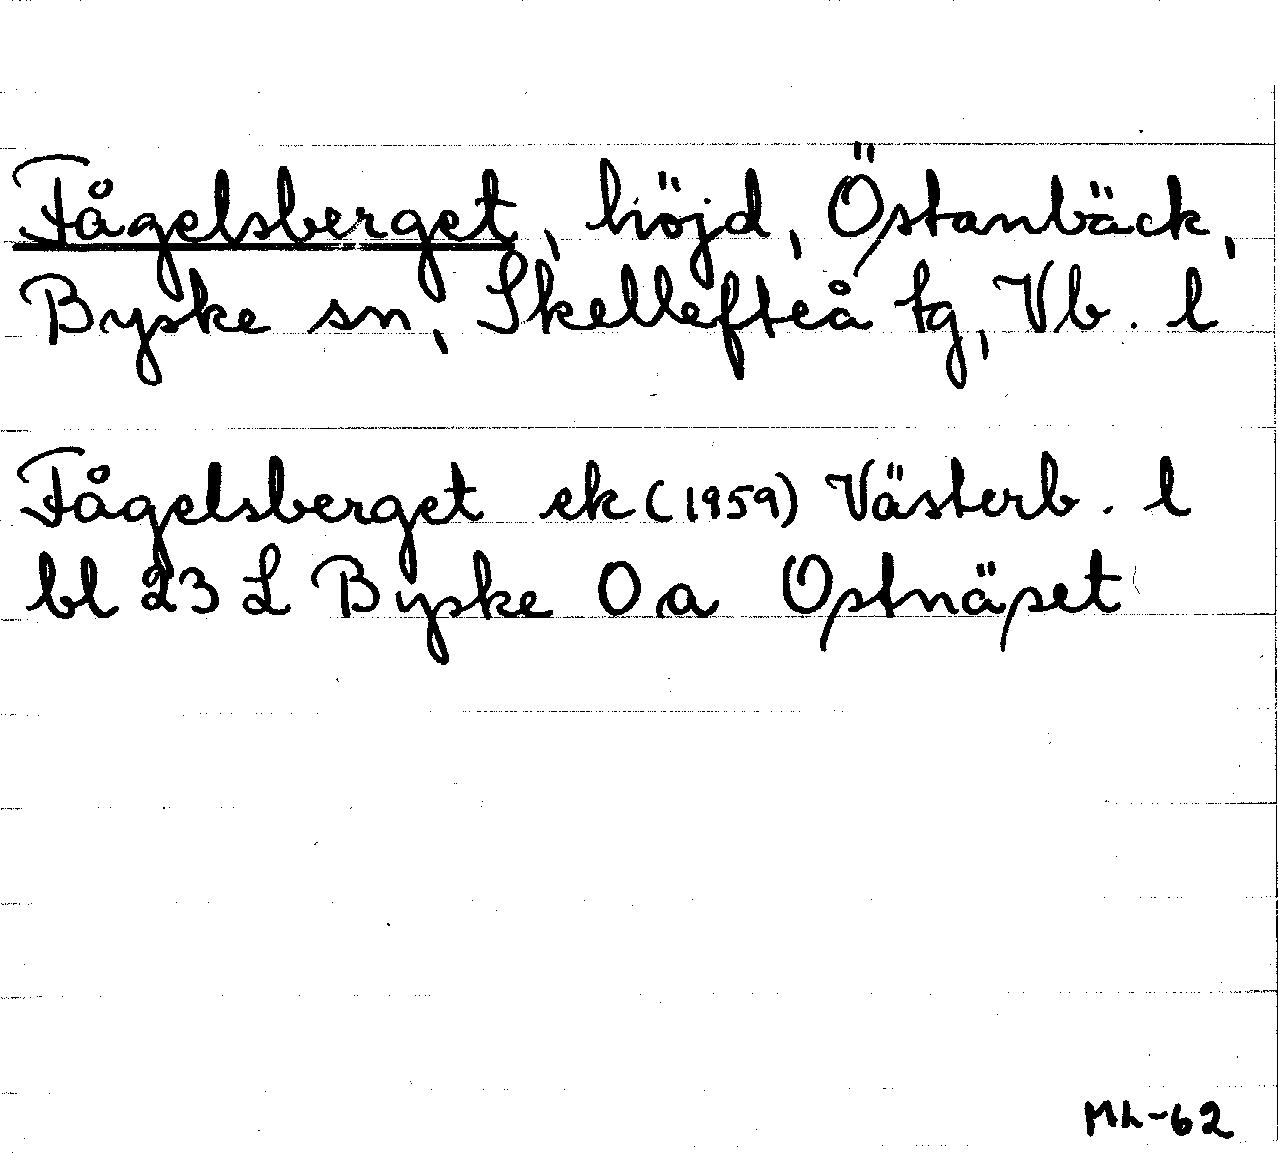 Fågelsberget, höjd, Östanbäck,
Byske sn, Skellefteå tg, Vb. l
Fågelsberget ek (1959) Västerb. l
bl 23 L Byske O a Ostnäset
ML-62